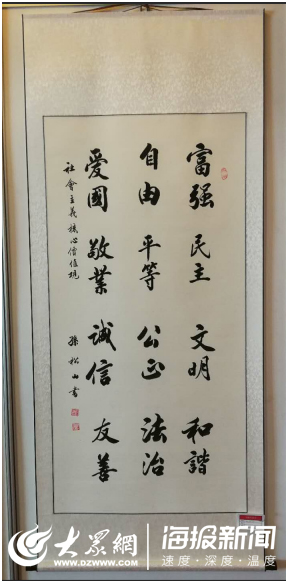 富强 民主 文明 和諧
自由 平等 公正 法治
爱國 敬業 誠信 友善
社會主義核心價值观
孫松山书
大眾網
WWW.DZWWW.COM
海报新闻
速度·深度·温度